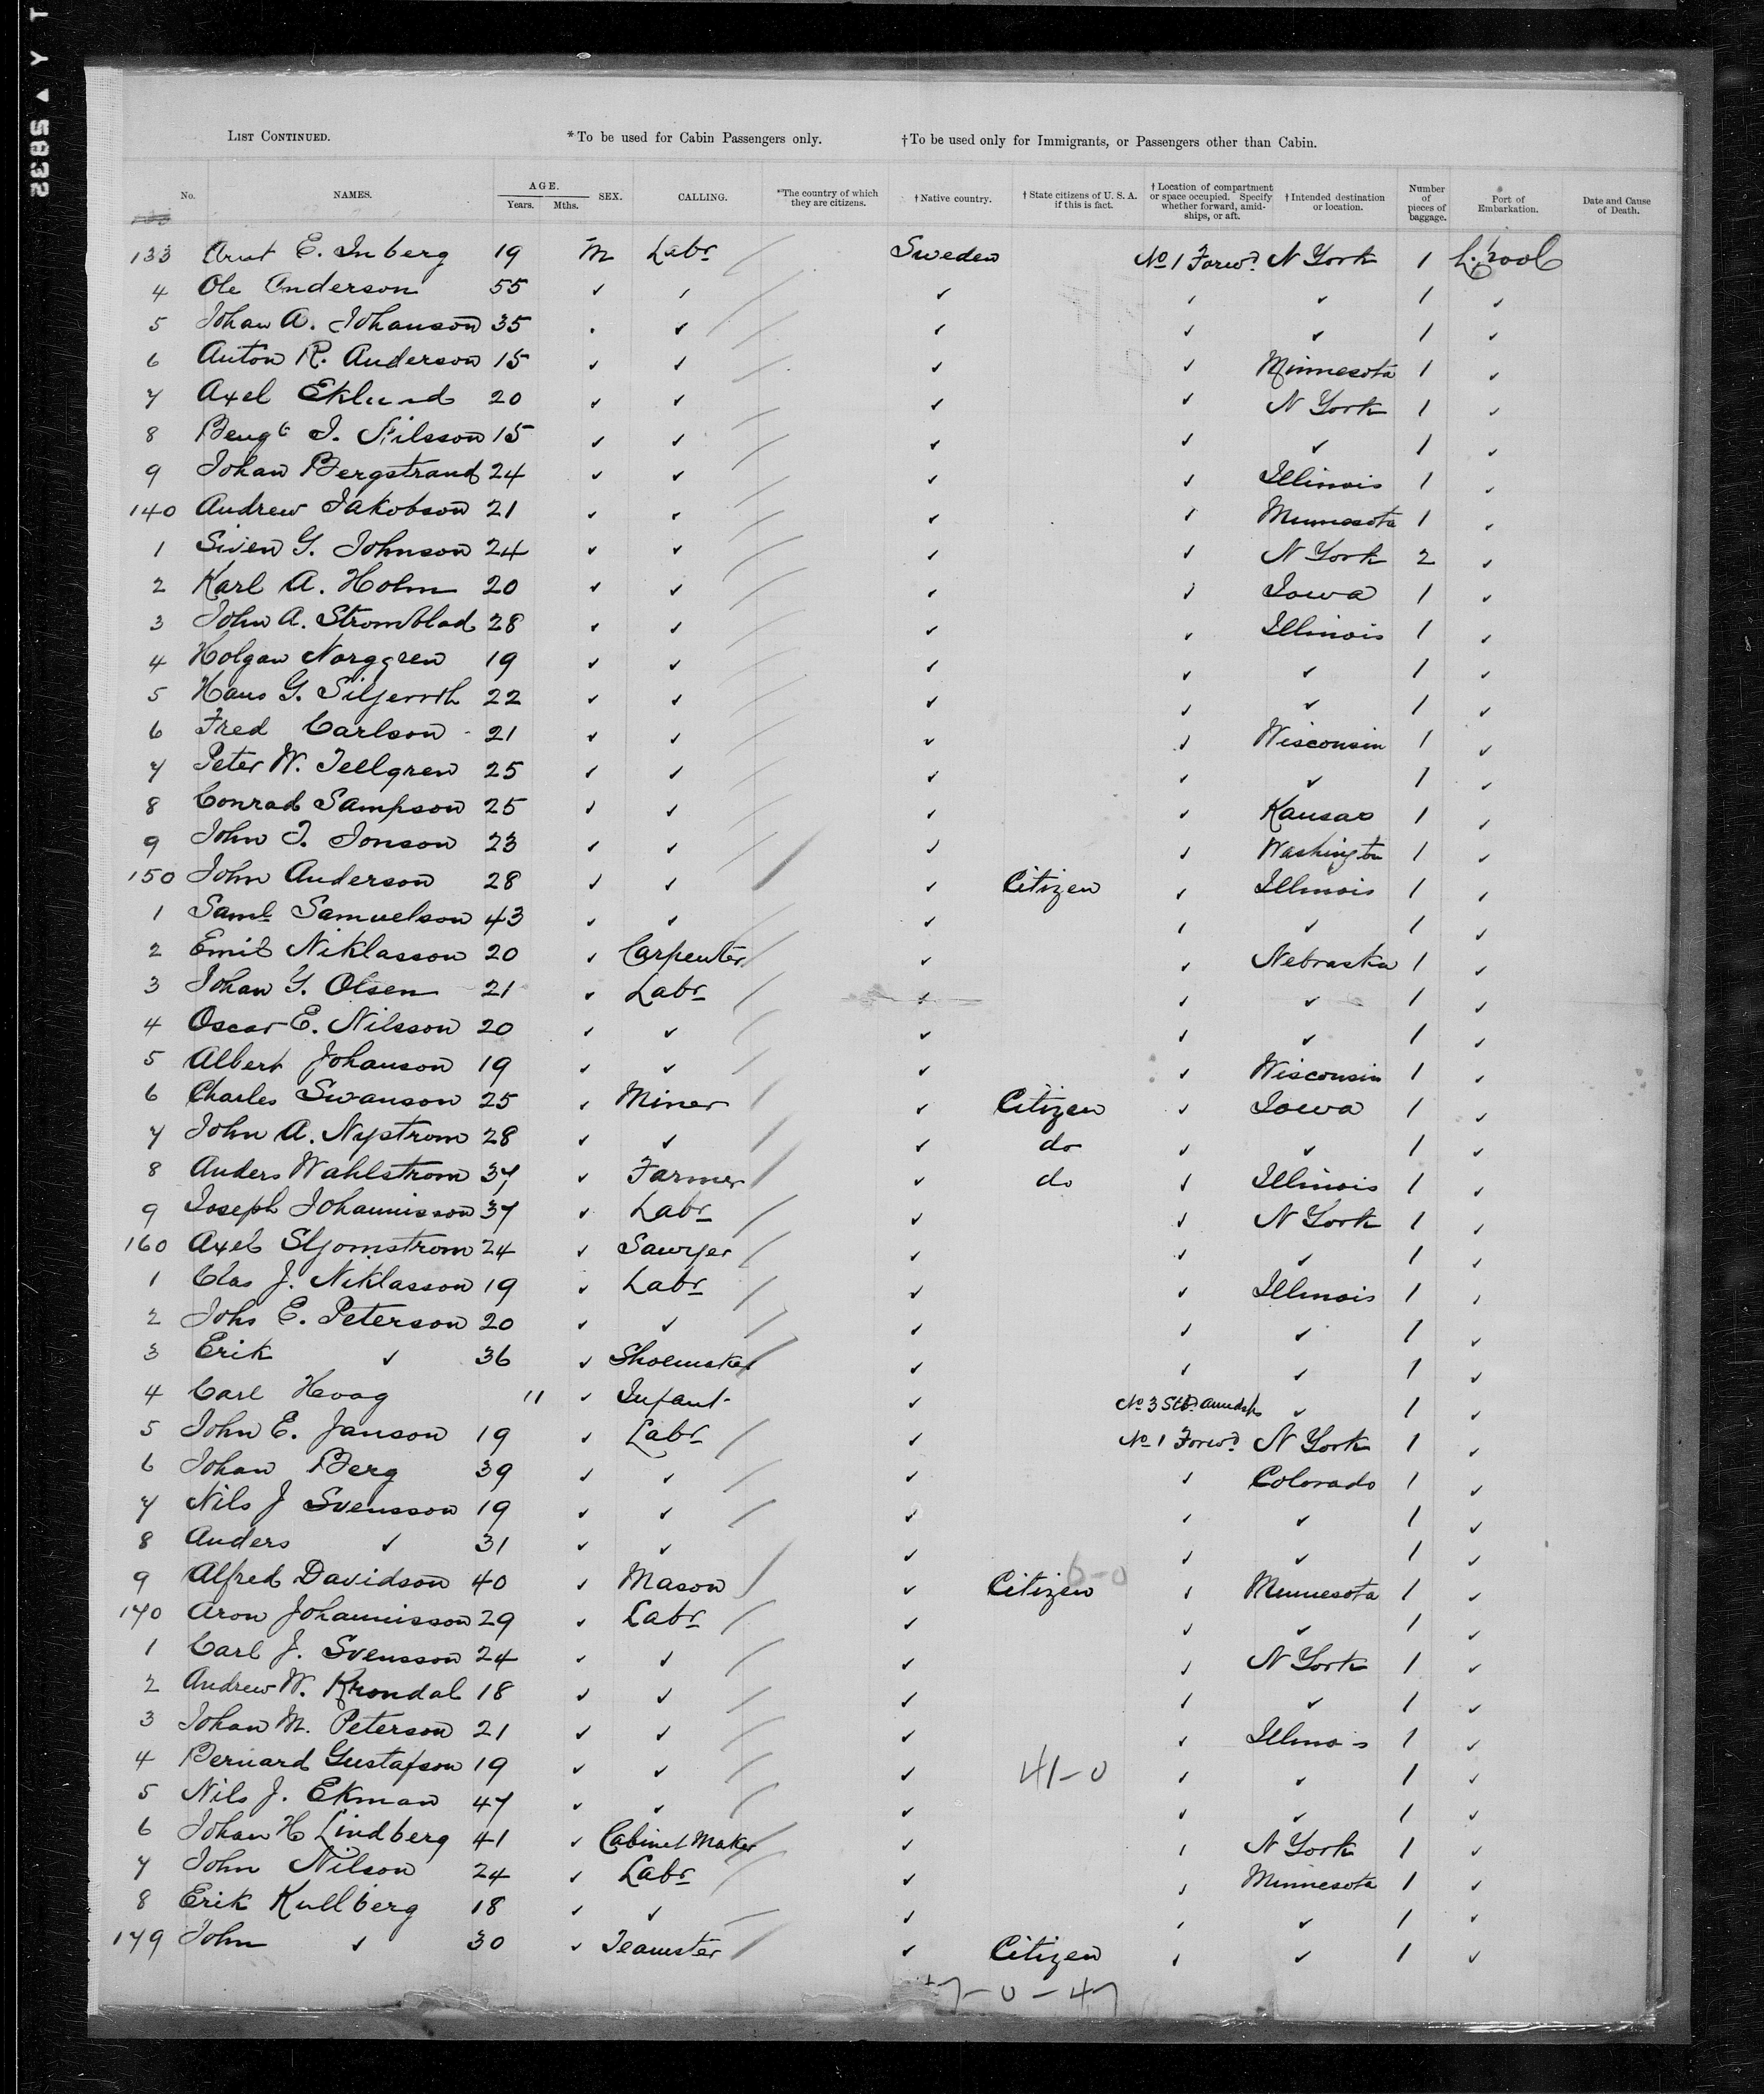 T Y ▲ 5832
LIST CONTINUED. *To be used for Cabin Passengers only. †To be used only for Immigrants, or Passengers other than Cabin.
No. NAMES. AGE. Years. Mths. SEX. CALLING. *The country of which they are citizens. †Native country. †State citizens of U. S. A. if this is fact. †Location of compartment or space occupied. Specify whether forward, amidships, or aft. †Intended destination or location. Number of pieces of baggage. Port of Embarkation. Date and Cause of Death.
133 E. Inberg 19 m Labr Sweden No 1 Forwd N York 1 L.pool
4 Ole Anderson 55 ✓ ✓ ✓ ✓ ✓ 1 ✓
5 Johan A. Johanson 35 . ✓ ✓ ✓ ✓ 1 ✓
6 Anton R. Anderson 15 ✓ ✓ ✓ ✓ Minnesota 1 ✓
7 Axel Eklund 20 ✓ ✓ ✓ ✓ N York 1 ✓
8 Bengt J. Nilsson 15 ✓ ✓ ✓ ✓ ✓ 1 ✓
9 Johan Bergstrand 24 ✓ ✓ ✓ ✓ Illinois 1 ✓
140 Andrew Jakobson 21 ✓ ✓ ✓ ✓ Minnesota 1 ✓
1 Swen G. Johnson 24 ✓ ✓ ✓ ✓ N York 2 ✓
2 Karl A. Holm 20 ✓ ✓ ✓ ✓ Iowa 1 ✓
3 John A. Stromblad 28 ✓ ✓ ✓ ✓ Illinois 1 ✓
4 Holgan Norggren 19 ✓ ✓ ✓ ✓ ✓ 1 ✓
5 Hans G. 22 ✓ ✓ ✓ ✓ ✓ 1 ✓
6 Fred Carlson 21 ✓ ✓ ✓ ✓ Wisconsin 1 ✓
7 Peter W. Tellgren 25 ✓ ✓ ✓ ✓ ✓ 1 ✓
8 Conrad Sampson 25 ✓ ✓ ✓ ✓ Kansas 1 ✓
9 John J. Jonson 23 ✓ ✓ ✓ ✓ Washington 1 ✓
150 John Anderson 28 ✓ ✓ ✓ Citizen ✓ Illinois 1 ✓
1 Saml Samuelson 43 ✓ ✓ ✓ ✓ ✓ 1 ✓
2 Emil Niklasson 20 ✓ Carpenter ✓ ✓ Nebraska 1 ✓
3 Johan G. Olsen 21 ✓ Labr ✓ ✓ ✓ 1 ✓
4 Oscar E. Nilsson 20 ✓ ✓ ✓ ✓ ✓ 1 ✓
5 Albert Johanson 19 ✓ ✓ ✓ ✓ Wisconsin 1 ✓
6 Charles Swanson 25 ✓ Miner ✓ Citizen ✓ Iowa 1 ✓
7 John A. Nystrom 28 ✓ ✓ ✓ do ✓ ✓ 1 ✓
8 Anders Wahlstrom 37 ✓ Farmer ✓ do ✓ Illinois 1 ✓
9 Joseph Johannisson 37 ✓ Labr ✓ ✓ N York 1 ✓
160 Axel Sljomstrom 24 ✓ Sawyer ✓ ✓ ✓ 1 ✓
1 Clas J. Niklasson 19 ✓ Labr ✓ ✓ Illinois 1 ✓
2 Johs E. Peterson 20 ✓ ✓ ✓ ✓ ✓ 1 ✓
3 Erik ✓ 36 ✓ Shoemaker ✓ ✓ ✓ 1 ✓
4 Carl Hoog 11 ✓ Infant ✓ No 3 Stbd Amidsps ✓ 1 ✓
5 John E. Janson 19 ✓ Labr ✓ No 1 Forwd N York 1 ✓
6 Johan Berg 39 ✓ ✓ ✓ ✓ Colorado 1 ✓
7 Nils J Svensson 19 ✓ ✓ ✓ ✓ ✓ 1 ✓
8 Anders ✓ 31 ✓ ✓ ✓ ✓ ✓ 1 ✓
6-0
9 Alfred Davidson 40 ✓ Mason ✓ Citizen ✓ Minnesota 1 ✓
170 Aron Johannisson 29 ✓ Labr ✓ ✓ ✓ 1 ✓
1 Carl J. Svensson 24 ✓ ✓ ✓ ✓ N York 1 ✓
2 Andrew W. Krondal 18 ✓ ✓ ✓ ✓ ✓ 1 ✓
3 Johan M. Peterson 21 ✓ ✓ ✓ ✓ Illinois 1 ✓
4 Bernard Gustafson 19 ✓ ✓ ✓ 41-0 ✓ ✓ 1 ✓
5 Nils J. Ekman 47 ✓ ✓ ✓ ✓ ✓ 1 ✓
6 Johan H Lindberg 41 ✓ Cabinet Maker ✓ ✓ N York 1 ✓
7 John Nilson 24 ✓ Labr ✓ ✓ Minnesota 1 ✓
8 Erik Kullberg 18 ✓ ✓ ✓ ✓ ✓ 1 ✓
179 John ✓ 30 ✓ Teamster ✓ Citizen ✓ ✓ 1 ✓
7-0-47